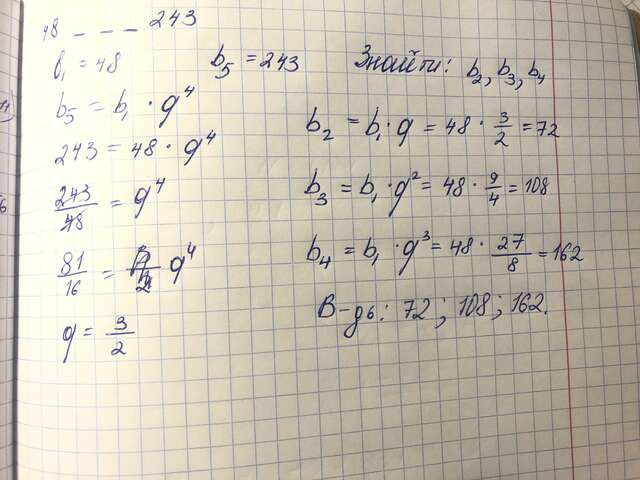 48 _ _ _ 243
b₁ = 48
b₅ = 243
Знайти: b₂, b₃, b₄
b₅ = b₁ · q⁴
243 = 48 · q⁴
243/48 = q⁴
81/16 = q⁴
q = 3/2
b₂ = b₁ · q = 48 · 3/2 = 72
b₃ = b₁ · q² = 48 · 9/4 = 108
b₄ = b₁ · q³ = 48 · 27/8 = 162
В-дь: 72; 108; 162.